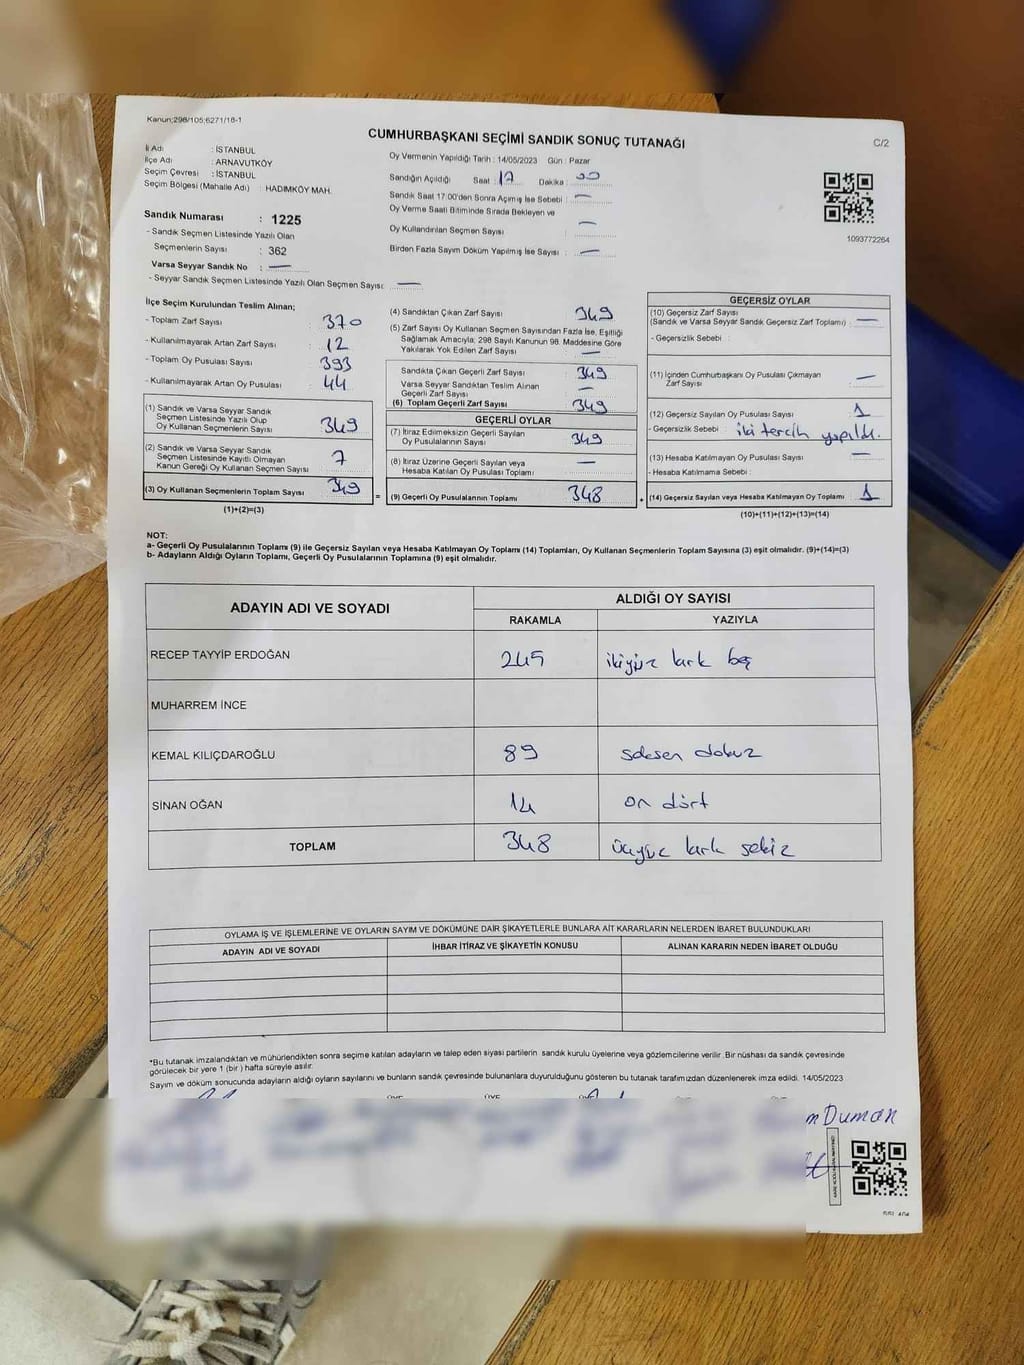 Kanun;298/105;6271/18-1
CUMHURBAŞKANI SEÇİMİ SANDIK SONUÇ TUTANAĞI
C/2
İl Adı : İSTANBUL
İlçe Adı : ARNAVUTKÖY
Seçim Çevresi : İSTANBUL
Seçim Bölgesi (Mahalle Adı) : HADIMKÖY MAH.
Sandık Numarası : 1225
- Sandık Seçmen Listesinde Yazılı Olan
Seçmenlerin Sayısı : 362
Varsa Seyyar Sandık No : —
- Seyyar Sandık Seçmen Listesinde Yazılı Olan Seçmen Sayısı: —
Oy Vermenin Yapıldığı Tarih : 14/05/2023 Gün : Pazar
Sandığın Açıldığı Saat : 17 Dakika : 00
Sandık Saat 17.00'den Sonra Açılmış İse Sebebi : —
Oy Verme Saati Bitiminde Sırada Bekleyen ve
Oy Kullandırılan Seçmen Sayısı : —
Birden Fazla Sayım Döküm Yapılmış İse Sayısı : —
1093772264
İlçe Seçim Kurulundan Teslim Alınan;
- Toplam Zarf Sayısı : 370
- Kullanılmayarak Artan Zarf Sayısı : 12
- Toplam Oy Pusulası Sayısı : 393
- Kullanılmayarak Artan Oy Pusulası : 44
(1) Sandık ve Varsa Seyyar Sandık
Seçmen Listesinde Yazılı Olup
Oy Kullanan Seçmenlerin Sayısı : 349
(2) Sandık ve Varsa Seyyar Sandık
Seçmen Listesinde Kayıtlı Olmayan
Kanun Gereği Oy Kullanan Seçmen Sayısı : 7
(3) Oy Kullanan Seçmenlerin Toplam Sayısı : 349
(1)+(2)=(3)
(4) Sandıktan Çıkan Zarf Sayısı : 349
(5) Zarf Sayısı Oy Kullanan Seçmen Sayısından Fazla İse, Eşitliği
Sağlamak Amacıyla; 298 Sayılı Kanunun 98. Maddesine Göre
Yakılarak Yok Edilen Zarf Sayısı : —
Sandıkta Çıkan Geçerli Zarf Sayısı : 349
Varsa Seyyar Sandıktan Teslim Alınan
Geçerli Zarf Sayısı : —
(6) Toplam Geçerli Zarf Sayısı : 349
GEÇERLİ OYLAR
(7) İtiraz Edilmeksizin Geçerli Sayılan
Oy Pusulalarının Sayısı : 349
(8) İtiraz Üzerine Geçerli Sayılan veya
Hesaba Katılan Oy Pusulası Toplamı : —
= (9) Geçerli Oy Pusulalarının Toplamı : 348
GEÇERSİZ OYLAR
(10) Geçersiz Zarf Sayısı
(Sandık ve Varsa Seyyar Sandık Geçersiz Zarf Toplamı) : —
- Geçersizlik Sebebi :
(11) İçinden Cumhurbaşkanı Oy Pusulası Çıkmayan
Zarf Sayısı : —
(12) Geçersiz Sayılan Oy Pusulası Sayısı : 1
- Geçersizlik Sebebi : iki tercih yapıldı.
(13) Hesaba Katılmayan Oy Pusulası Sayısı : —
- Hesaba Katılmama Sebebi :
+ (14) Geçersiz Sayılan veya Hesaba Katılmayan Oy Toplamı : 1
(10)+(11)+(12)+(13)=(14)
NOT:
a- Geçerli Oy Pusulalarının Toplamı (9) ile Geçersiz Sayılan veya Hesaba Katılmayan Oy Toplamı (14) Toplamları, Oy Kullanan Seçmenlerin Toplam Sayısına (3) eşit olmalıdır. (9)+(14)=(3)
b- Adayların Aldığı Oyların Toplamı, Geçerli Oy Pusulalarının Toplamına (9) eşit olmalıdır.
ADAYIN ADI VE SOYADI
ALDIĞI OY SAYISI
RAKAMLA YAZIYLA
RECEP TAYYİP ERDOĞAN 245 ikiyüz kırk beş
MUHARREM İNCE
KEMAL KILIÇDAROĞLU 89 seksen dokuz
SİNAN OĞAN 14 on dört
TOPLAM 348 üçyüz kırk sekiz
OYLAMA İŞ VE İŞLEMLERİNE VE OYLARIN SAYIM VE DÖKÜMÜNE DAİR ŞİKAYETLERLE BUNLARA AİT KARARLARIN NELERDEN İBARET BULUNDUKLARI
ADAYIN ADI VE SOYADI İHBAR İTİRAZ VE ŞİKAYETİN KONUSU ALINAN KARARIN NEDEN İBARET OLDUĞU
*Bu tutanak imzalandıktan ve mühürlendikten sonra seçime katılan adayların ve talep eden siyasi partilerin sandık kurulu üyelerine veya gözlemcilerine verilir. Bir nüshası da sandık çevresinde
görülecek bir yere 1 (bir) hafta süreyle asılır.
Sayım ve döküm sonucunda adayların aldığı oyların sayılarını ve bunların sandık çevresinde bulunanlara duyurulduğunu gösteren bu tutanak tarafımızdan düzenlenerek imza edildi. 14/05/2023
m Duman